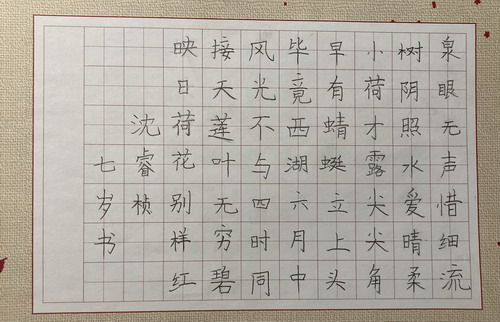 泉眼无声惜细流
树阴照水爱晴柔
小荷才露尖尖角
早有蜻蜓立上头
毕竟西湖六月中
风光不与四时同
接天莲叶无穷碧
映日荷花别样红
沈睿桢
七岁书